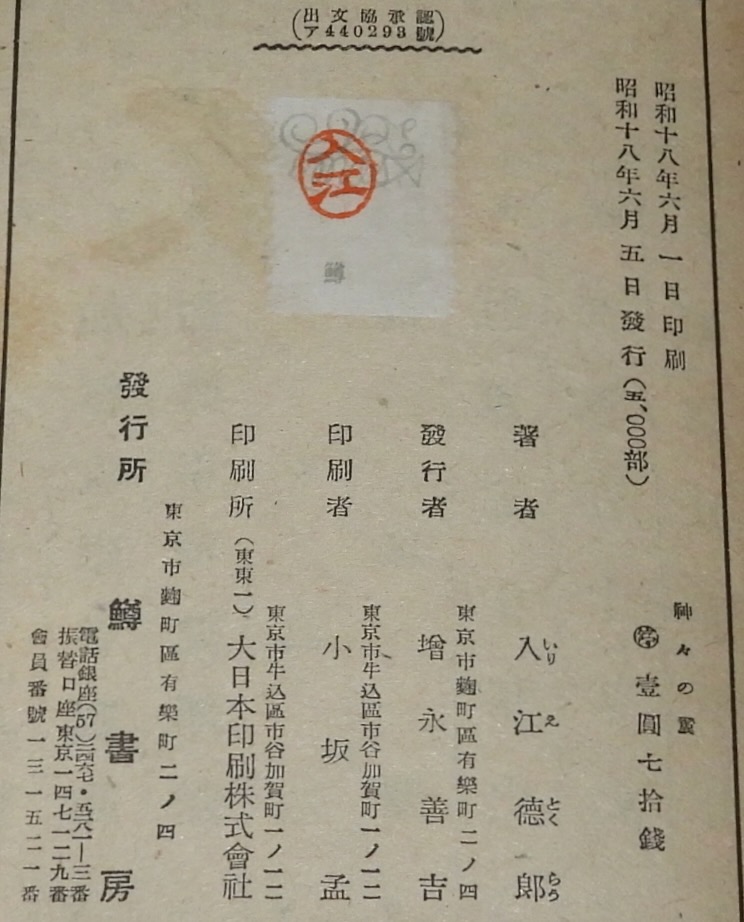 (出文協承認
ア440293號)
昭和十八年六月一日印刷
昭和十八年六月五日發行(五、〇〇〇部)
神々の
停 壹圓七拾錢
著者 入江德郎
いりえとくらう
東京市麴町區有樂町二ノ四
發行者 增永善吉
東京市牛込區市谷加賀町一ノ一二
印刷者 小坂孟
東京市牛込區市谷加賀町一ノ一二
印刷所(東東一)大日本印刷株式會社
入江
鱒
東京市麴町區有樂町二ノ四
發行所 鱒書房
電話銀座(57)
振替口座東京一四七一二九番
會員番號一三一五二一番